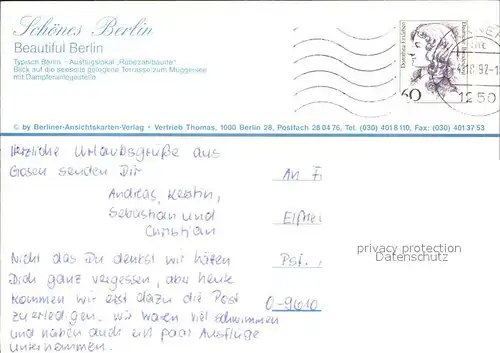 Schönes Berlin
Beautiful Berlin
Typisch Berlin - Ausflugslokal „Rübezahlbaude"
Blick auf die seeseite gelegene Terrasse zum Müggelsee
mit Dampferanlegestelle
Dorothea Erxleben
60
-8.92-1
1250
© by Berliner-Ansichtskarten-Verlag • Vertrieb Thomas, 1000 Berlin 28, Postfach 28 04 76, Tel. (030) 401 81 10, Fax: (030) 401 37 53
Herzliche Urlaubsgrüße aus
Gosen senden Dir
Andreas, Kerstin,
Sebastian und
Christian
Nicht das Du denkst wir hätten
Dich ganz vergessen, aber heute
kommen wir erst dazu die Post
zu erledigen. Wir waren viel schwimmen
und haben auch ein paar Ausflüge
unternommen.
An F
Pst.
O-9610
privacy protection
Datenschutz